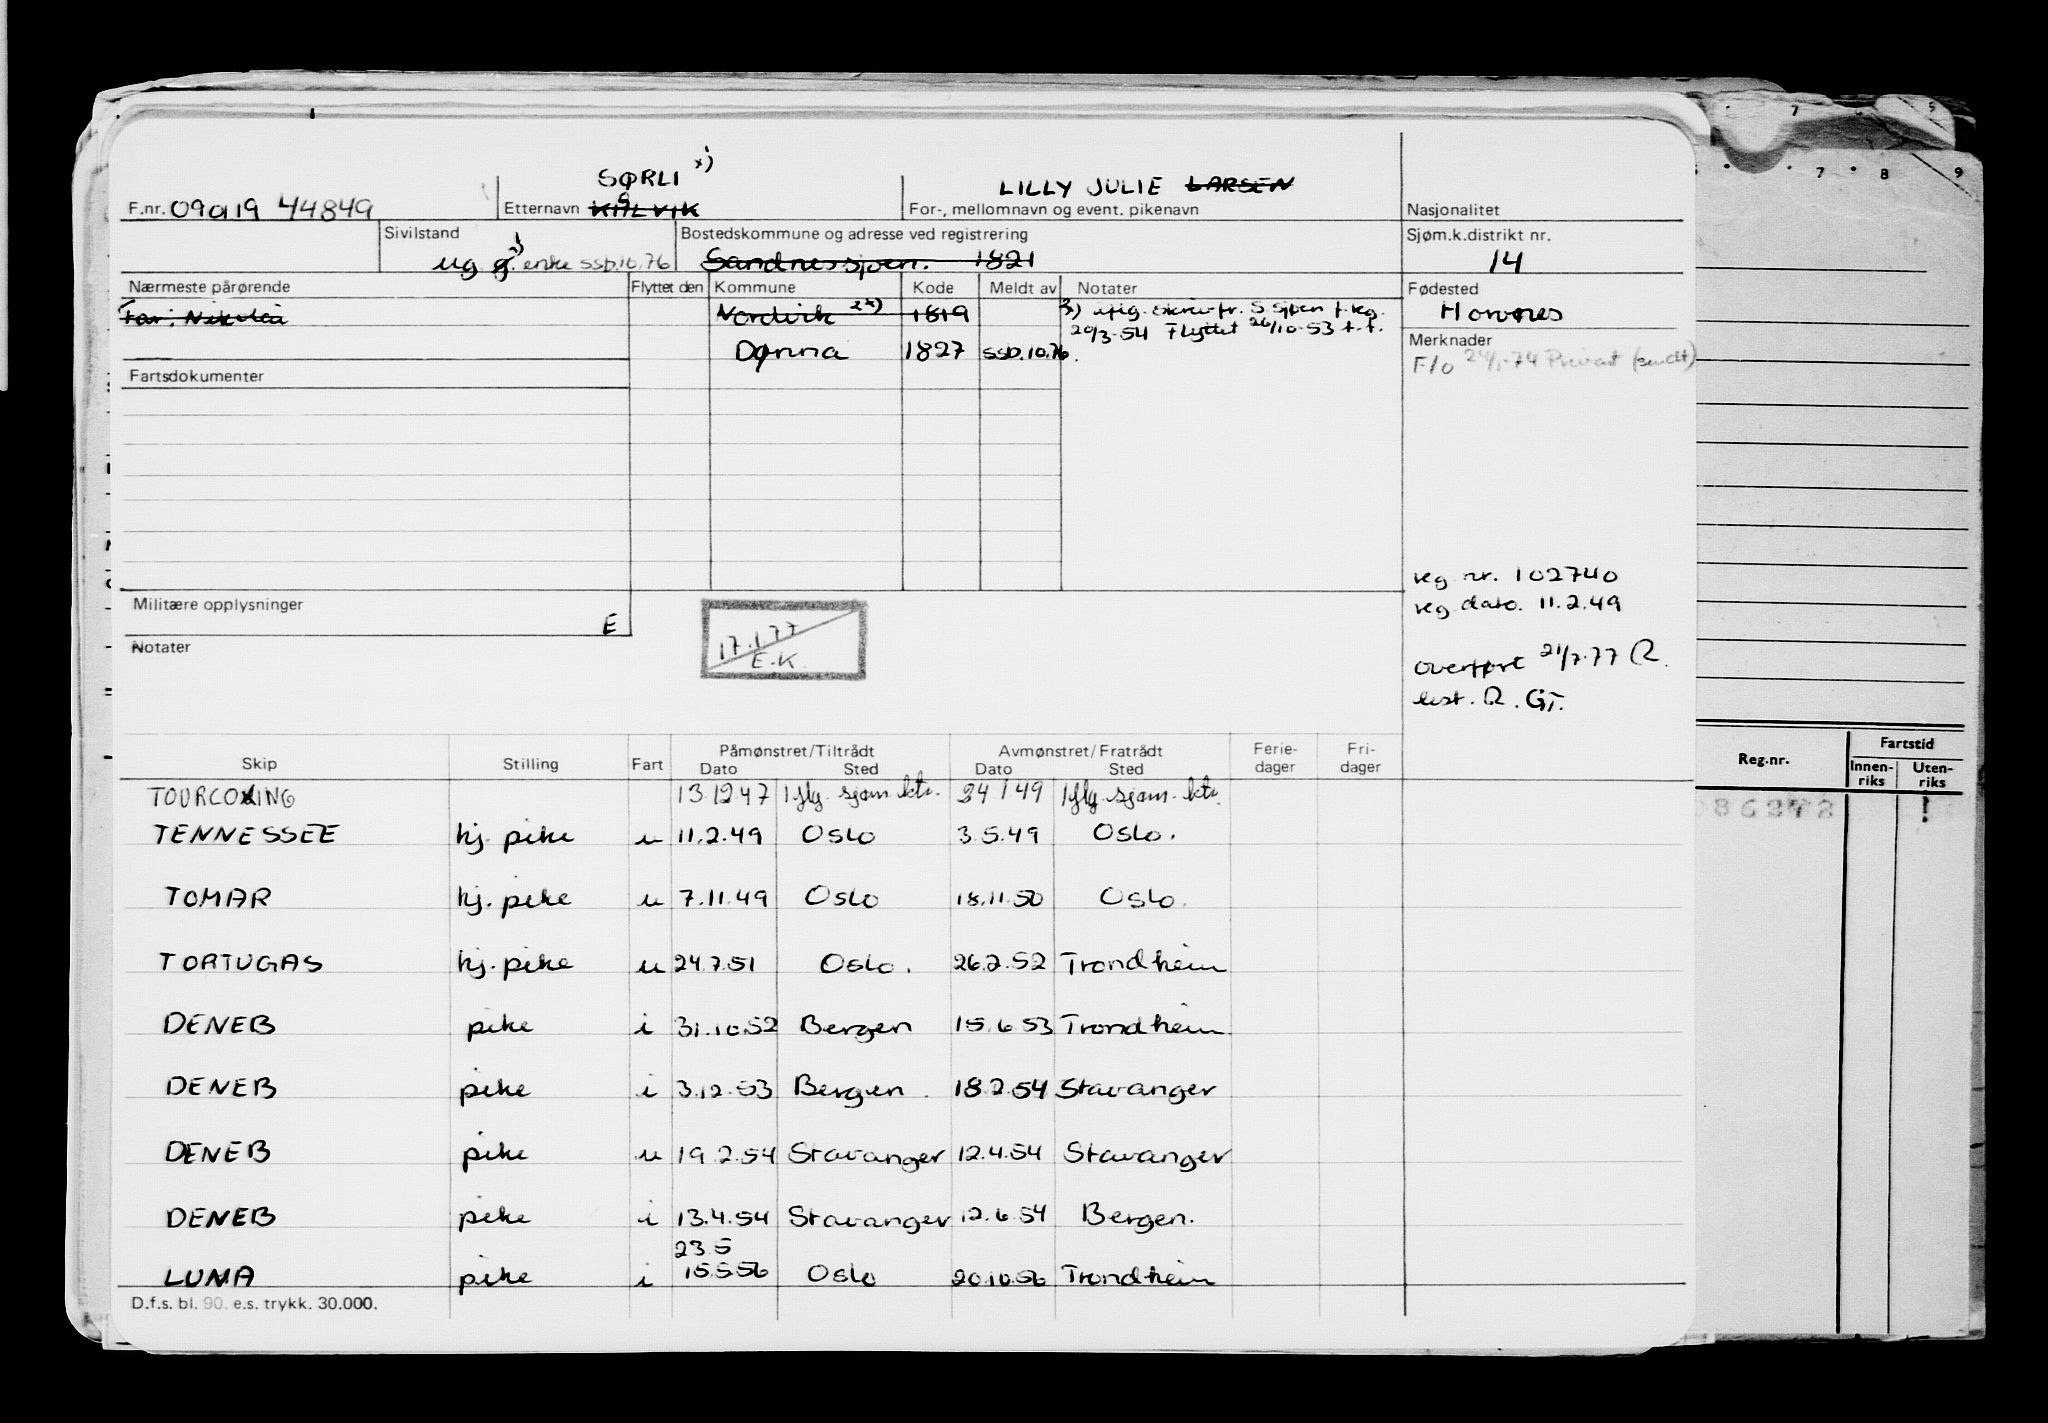 SØRLI x)
LILLY JULIE LARSEN
F.nr. 090919 44849 Etternavn KILVIK For-, mellomnavn og event. pikenavn Nasjonalitet
Sivilstand Bostedskommune og adresse ved registrering Sjøm.k.distrikt nr.
ug g. enke ssb.10.76 Sandnessjøen. 1821 14
Nærmeste pårørende Flyttet den Kommune Kode Meldt av Notater Fødested
Far: Nikolai Nordvik 1819 Flyttet 26/10-53 Hornnes
Dønna 1827 ssb.10.76. Merknader
F/o 24/1-74 Privat (sendt)
Fartsdokumenter
reg. nr. 102740
reg dato. 11.2.49
Militære opplysninger E
17.1.77
E.K.
Notater
overført 21/7.77 R.
lest. R. GT.
Skip Stilling Fart Påmønstret/Tiltrådt Dato Sted Avmønstret/Fratrådt Dato Sted Ferie-dager Fri-dager
TOURCOING 13.12 47 Iflg. sjøm.ktr. 24 1 49 Iflg. sjøm.ktr.
TENNESSEE kj. pike u 11.2.49 Oslo 3.5.49 Oslo.
TOMAR kj. pike u 7.11.49 Oslo 18.11.50 Oslo.
TORTUGAS kj. pike u 24.7.51 Oslo. 26.2.52 Trondheim
DENEB pike i 31.10.52 Bergen 15.6.53 Trondheim
DENEB pike i 3.12.53 Bergen. 18.2.54 Stavanger
DENEB pike u 19.2.54 Stavanger 12.4.54 Stavanger
DENEB pike i 13.4.54 Stavanger 12.6.54 Bergen.
23.5
LUNA pike i 15.5.56 Oslo 20.10.56 Trondheim
D.f.s. bl. 90. e.s. trykk. 30.000.
7 8 9
Reg.nr. Fartstid
Innen-riks Uten-riks